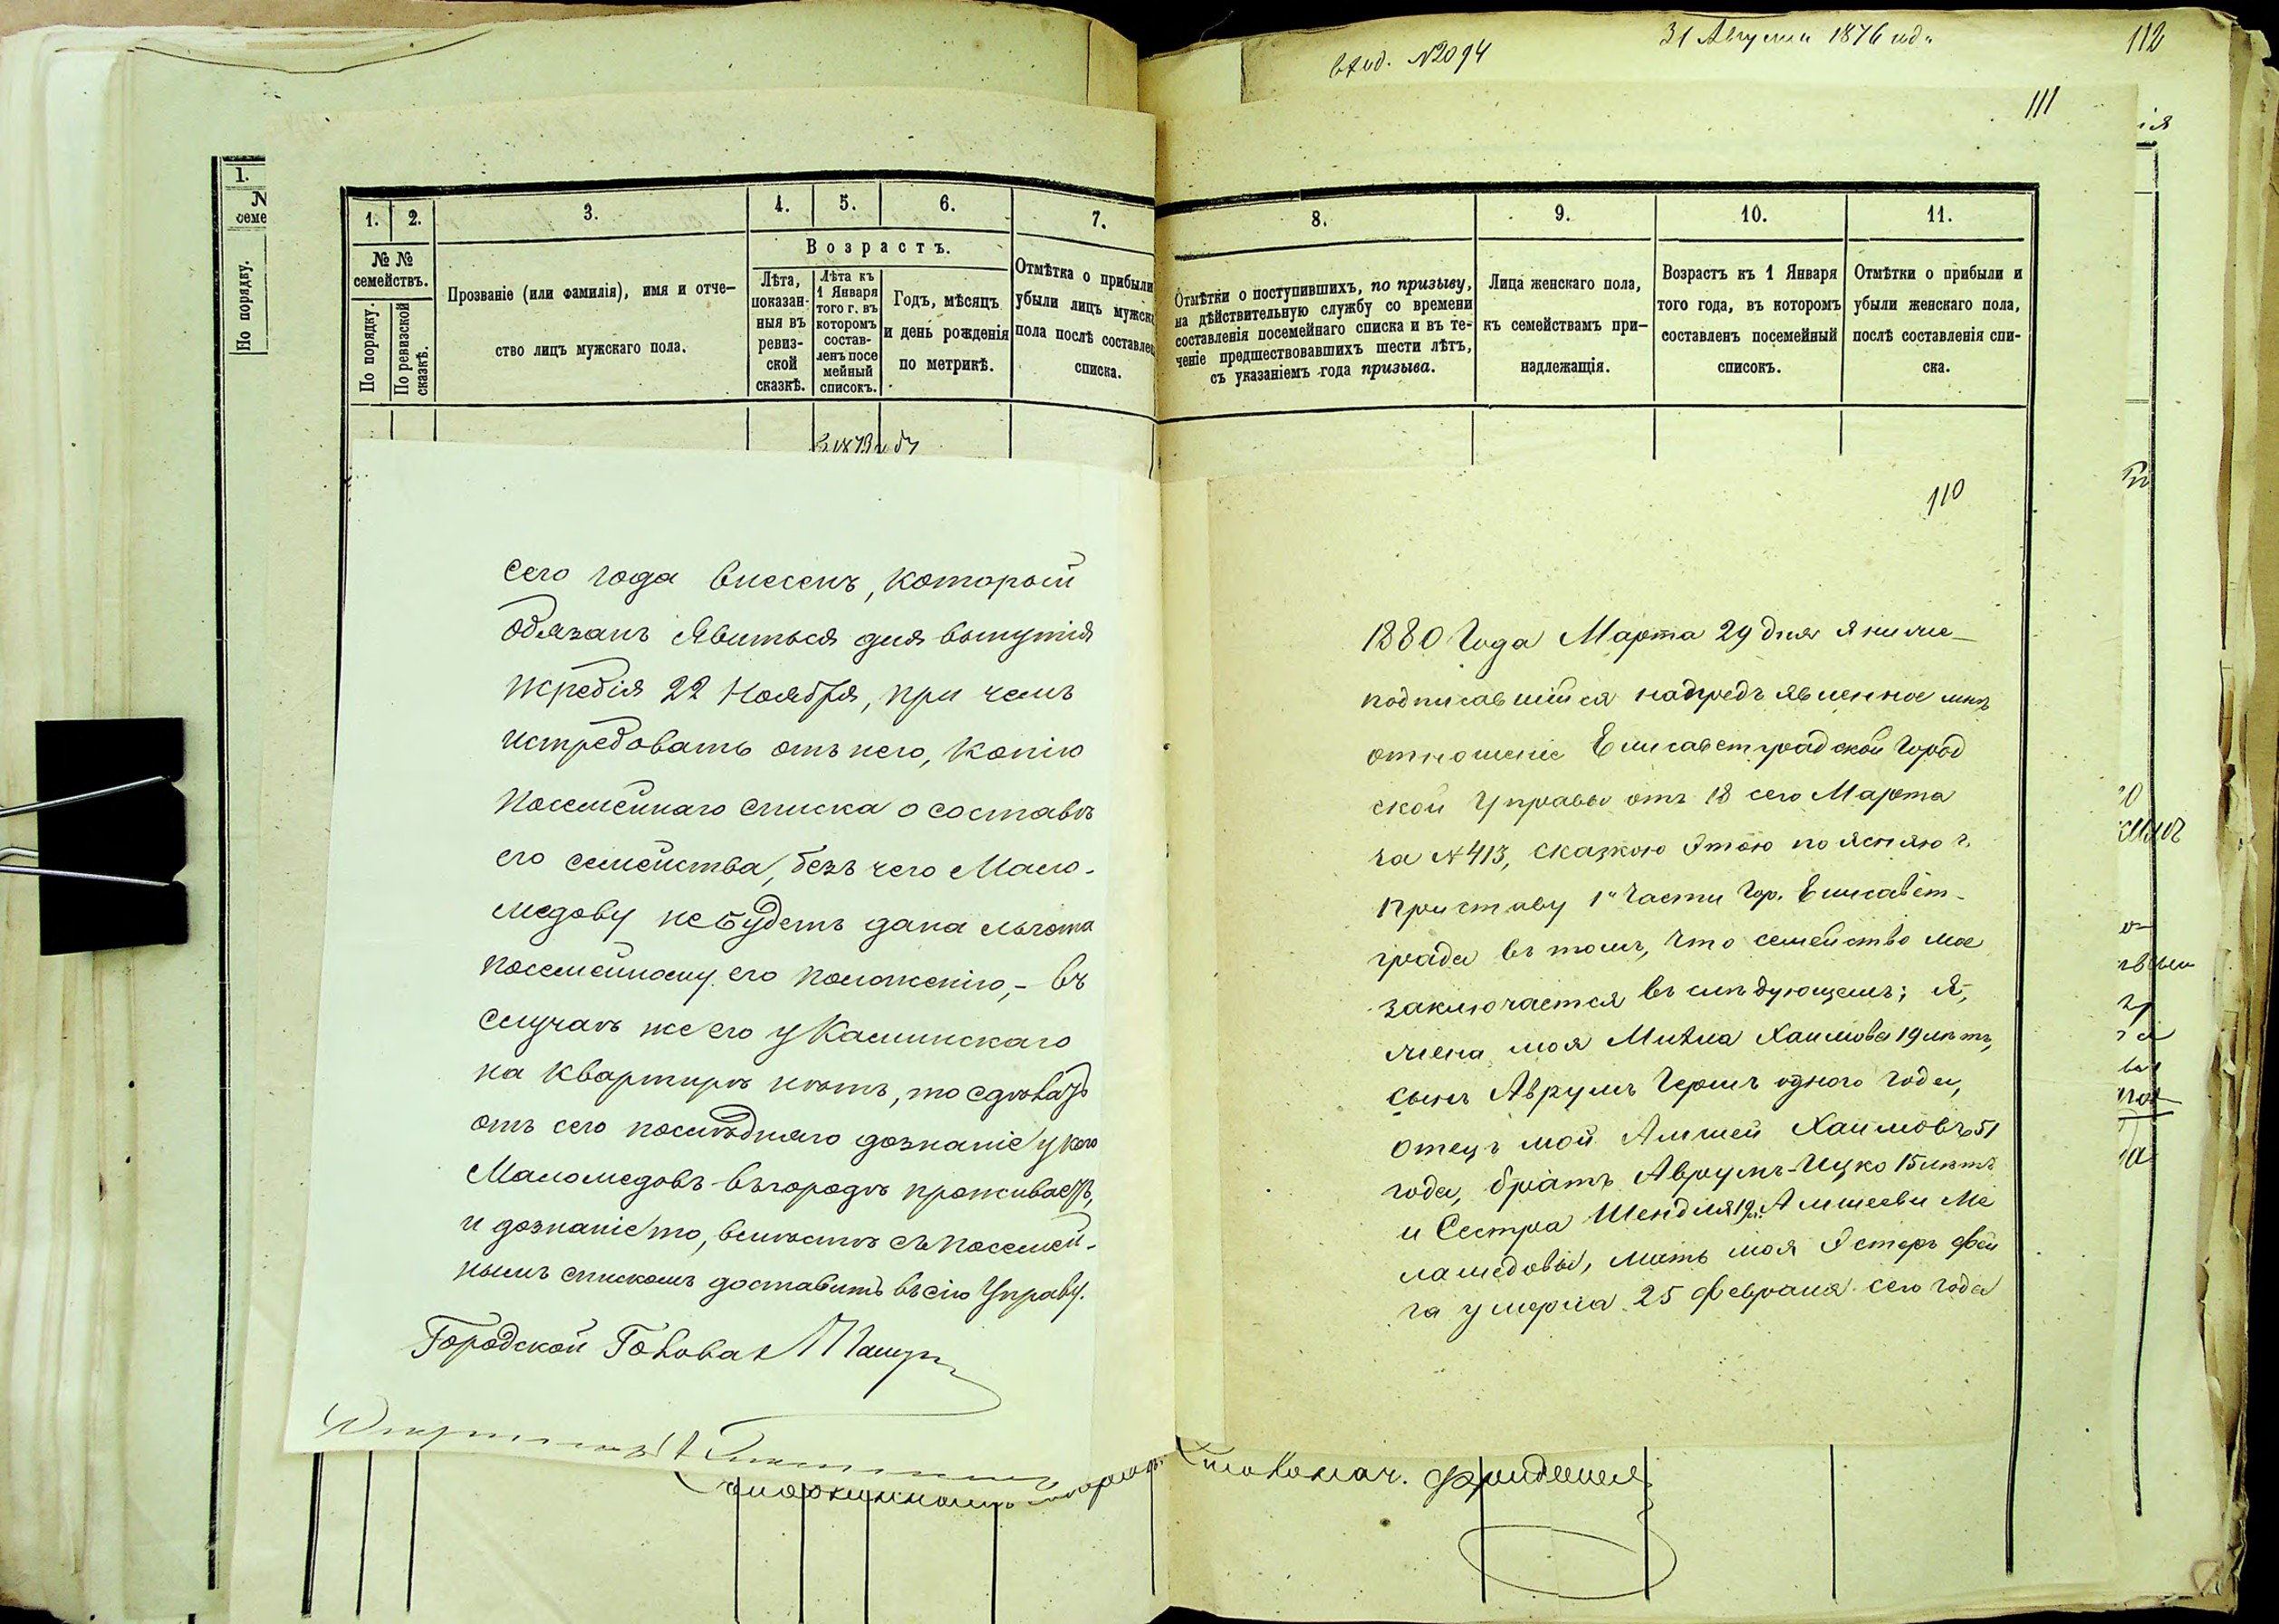 1.
№
семе
По порядку.
1.
2.
3.
4.
5.
6.
7.
№ №
семействъ.
По порядку.
По ревизской
сказкѣ.
Прозваніе (или фамилія), имя и отче-
ство лицъ мужскаго пола.
Возрастъ.
Лѣта,
показан-
ныя въ
ревиз-
ской
сказкѣ.
Лѣта къ
1 Января
того г. въ
которомъ
состав-
ленъ посе
мейный
списокъ.
Годъ, мѣсяцъ
и день рожденія
по метрикѣ.
Отмѣтка о прибыли
убыли лицъ мужск
пола послѣ составле
списка.
сего года внесенъ, который
обязанъ явиться для вынутія
жребія 22 Ноября, при чемъ
истребовать отъ него, копію
посемейнаго списка о составѣ
его семейства, безъ чего Мало-
медову небудетъ дана льгота
посемейному его положенію,- въ
случаѣ же его у Калинскаго
на квартирѣ нѣтъ, то сдѣлать
отъ сего послѣдняго дознаніе у кого
Маломедовъ въгородѣ проживаетъ,
и дознаніе то, вмѣстѣ съ посемей-
нымъ спискомъ доставить въ сію Управу.
Городской Голова
вход. №2094
31 Августа 1876 год.
112
111
8.
9.
10.
11.
Отмѣтки о поступившихъ, по призыву,
на дѣйствительную службу со времени
составленія посемейнаго списка и въ те-
ченіе предшествовавшихъ шести лѣтъ,
съ указаніемъ года призыва.
Лица женскаго пола,
къ семействамъ при-
надлежащія.
Возрастъ къ 1 Января
того года, въ которомъ
составленъ посемейный
списокъ.
Отмѣтки о прибыли и
убыли женскаго пола,
послѣ составленія спи-
ска.
110
1880 Года Марта 29 дня я ниже-
подписавшійся надпредъявленное мнѣ
отношеніе Елисаветградской Город
ской Управы отъ 18 сего Марта
за №413, сказкою этою поясняю г.
Приставу 1й Части Гор. Елисавет-
града въ томъ, что семейство мое
заключается въ слѣдующемъ; Я,
жена моя Хаимова 19 лѣтъ,
сынъ Аврумъ Гершъ одного года,
отецъ мой Алшей Хаимовъ 51
года, братъ Аврумъ-Ицко 15 лѣтъ
и Сестра Шендля 19 л. Алшеевы Ме
ламедовы, мать моя Эстеръ Фей
га умерла 25 Февраля сего года